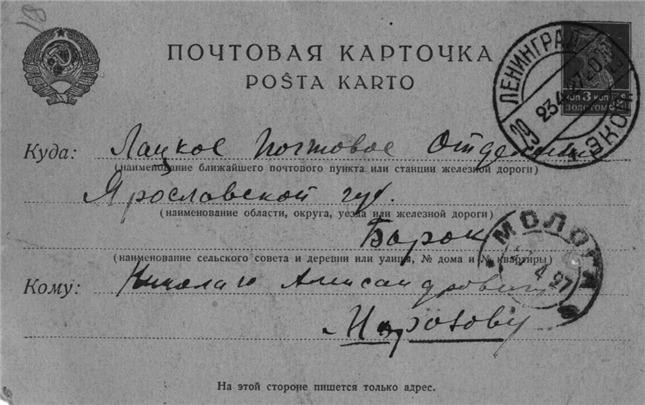 18
ПОЧТОВАЯ КАРТОЧКА
POŜTA KARTO
ЛЕНИНГРАД
23.4.27
29
ЭКСП
КОП 3 КОП
ЗОЛОТОМ
Куда: Лацкое Почтовое Отделение
(наименование ближайшего почтового пункта или станции железной дороги)
Ярославской губ.
(наименование области, округа, уезда или железной дороги)
Борок
(наименование сельского совета и деревни или улица, № дома и № квартиры)
МОЛОГА
4 27
Кому: Николаю Александровичу
Морозову
На этой стороне пишется только адрес.